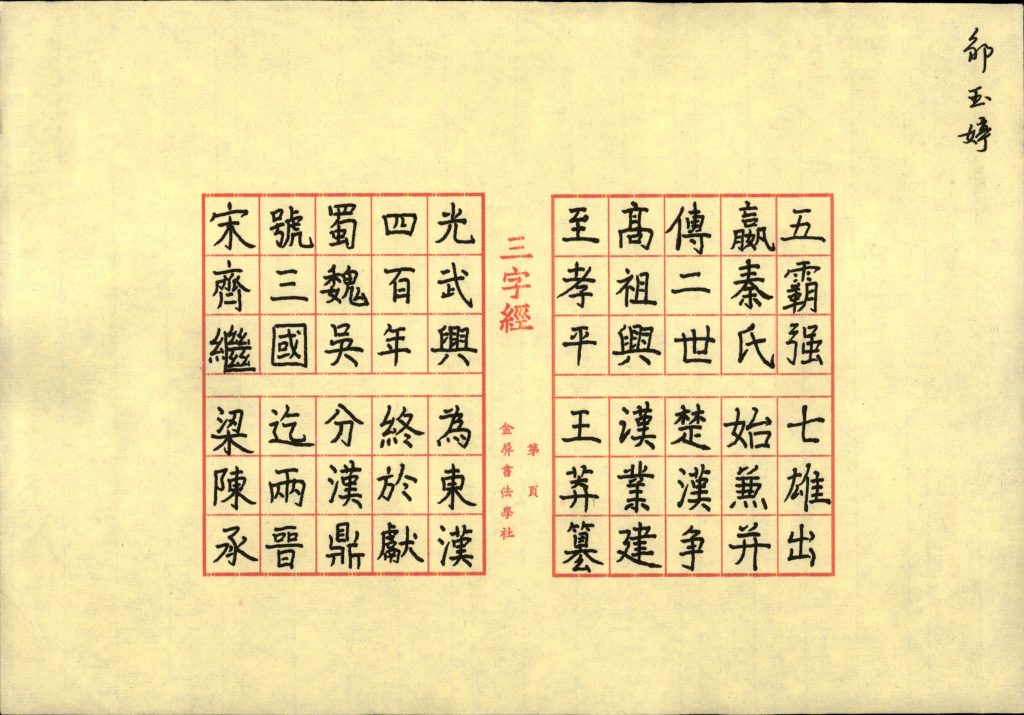 玉婷
五霸强 七雄出
嬴秦氏 始兼并
傳二世 楚漢争
髙祖興 漢業建
至孝平 王莽篡
三字經
第 頁
金屏書法學社
光武興 為東漢
四百年 終於獻
蜀魏吳 分漢鼎
號三國 迄兩晉
宋齊繼 梁陳承